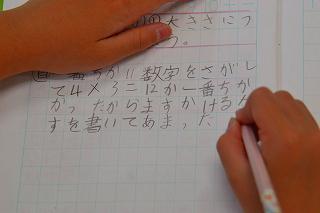 大きさにつ
う。
自 一番ちかい数字をさがし
て4×3=12が一番ちか
かったからますかけるた
すを書いてあまった